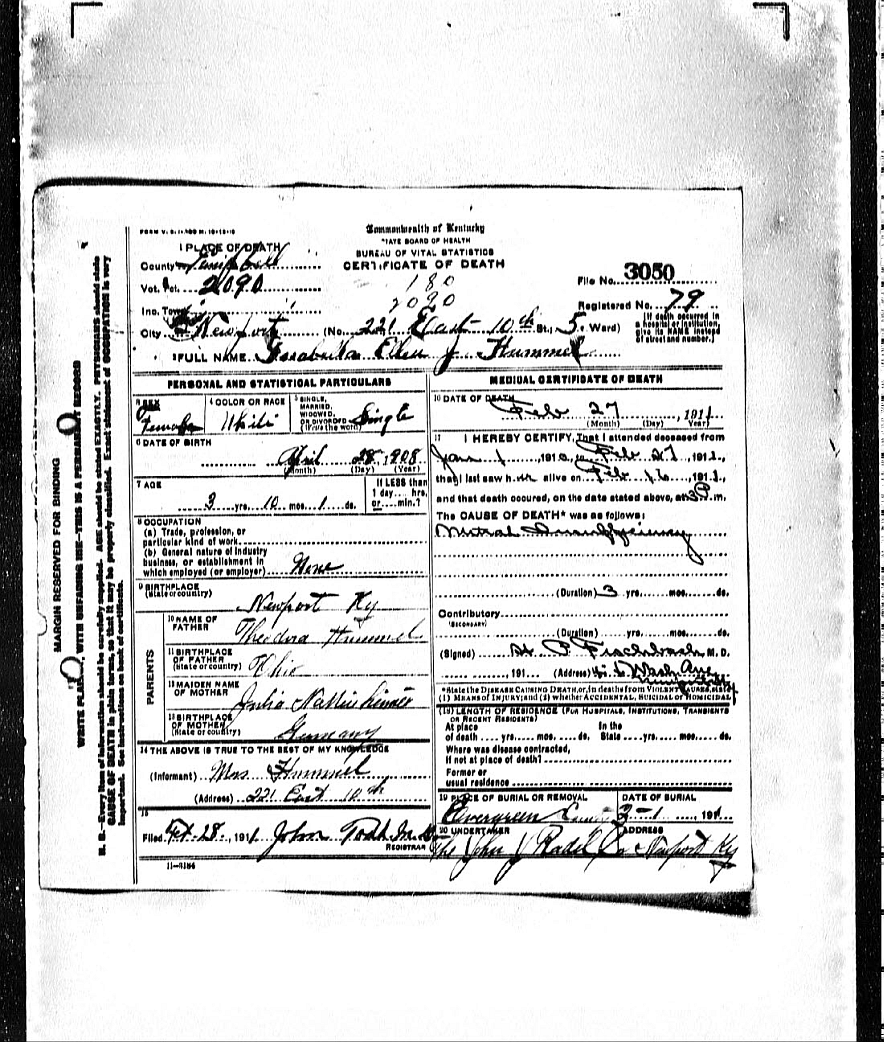 FORM V. S.
Commonwealth of Kentucky
STATE BOARD OF HEALTH
BUREAU OF VITAL STATISTICS
CERTIFICATE OF DEATH
1 PLACE OF DEATH
County Campbell
Vot. Pct. 2090
180
2090
File No. 3050
Registered No. 79
Inc. Town
City Newport (No. 221 East 10th St., 5 Ward)
[If death occurred in a hospital or institution, give its NAME instead of street and number.]
2 FULL NAME Ellen J Hummel
PERSONAL AND STATISTICAL PARTICULARS
3 SEX
Female
4 COLOR OR RACE
White
5 SINGLE, MARRIED, WIDOWED, OR DIVORCED (Write the word)
Single
6 DATE OF BIRTH
April 28, 1908
(Month) (Day) (Year)
7 AGE
3 yrs. 10 mos. 1 ds.
If LESS than 1 day.... hrs. or.... min.?
8 OCCUPATION
(a) Trade, profession, or
particular kind of work
(b) General nature of industry
business, or establishment in
which employed (or employer) None
9 BIRTHPLACE
(State or country)
Newport Ky
PARENTS
10 NAME OF FATHER
Hummel
11 BIRTHPLACE OF FATHER
(State or country) Ohio
12 MAIDEN NAME OF MOTHER
Julia
13 BIRTHPLACE OF MOTHER
(State or country) Germany
14 THE ABOVE IS TRUE TO THE BEST OF MY KNOWLEDGE
(Informant) Mrs Hummel
(Address) 221 East 10th
15
Filed Feb 28, 1911 John Todd M.D.
REGISTRAR
11-3184
MEDICAL CERTIFICATE OF DEATH
16 DATE OF DEATH
Feb 27, 1911
(Month) (Day) (Year)
17 I HEREBY CERTIFY, That I attended deceased from
Jan 1, 191 , to Feb 27, 1911,
that I last saw h alive on Feb 16, 1911,
and that death occured, on the date stated above, at 3 P m.
The CAUSE OF DEATH* was as follows:
Mitral Insufficiency
(Duration) 3 yrs. mos. ds.
Contributory
(SECONDARY)
(Duration) yrs. mos. ds.
(Signed) H. P. Fischbach M. D.
, 191 (Address) Wash Ave
*State the DISEASE CAUSING DEATH, or, in deaths from VIOLENT CAUSES, state
(1) MEANS OF INJURY; and (2) whether ACCIDENTAL, SUICIDAL or HOMICIDAL
18 LENGTH OF RESIDENCE (FOR HOSPITALS, INSTITUTIONS, TRANSIENTS
OR RECENT RESIDENTS)
At place of death yrs. mos. ds. In the State yrs. mos. ds.
Where was disease contracted,
If not at place of death?
Former or
usual residence
19 PLACE OF BURIAL OR REMOVAL
Evergreen
DATE OF BURIAL
3-1, 1911
20 UNDERTAKER
The John J Radel Co
ADDRESS
Newport Ky
MARGIN RESERVED FOR BINDING
WRITE PLAINLY, WITH UNFADING INK—THIS IS A PERMANENT RECORD
N. B.—Every item of information should be carefully supplied. AGE should be stated EXACTLY. PHYSICIANS should state
CAUSE OF DEATH in plain terms, so that it may be properly classified. Exact statement of OCCUPATION is very
important. See instructions on back of certificate.